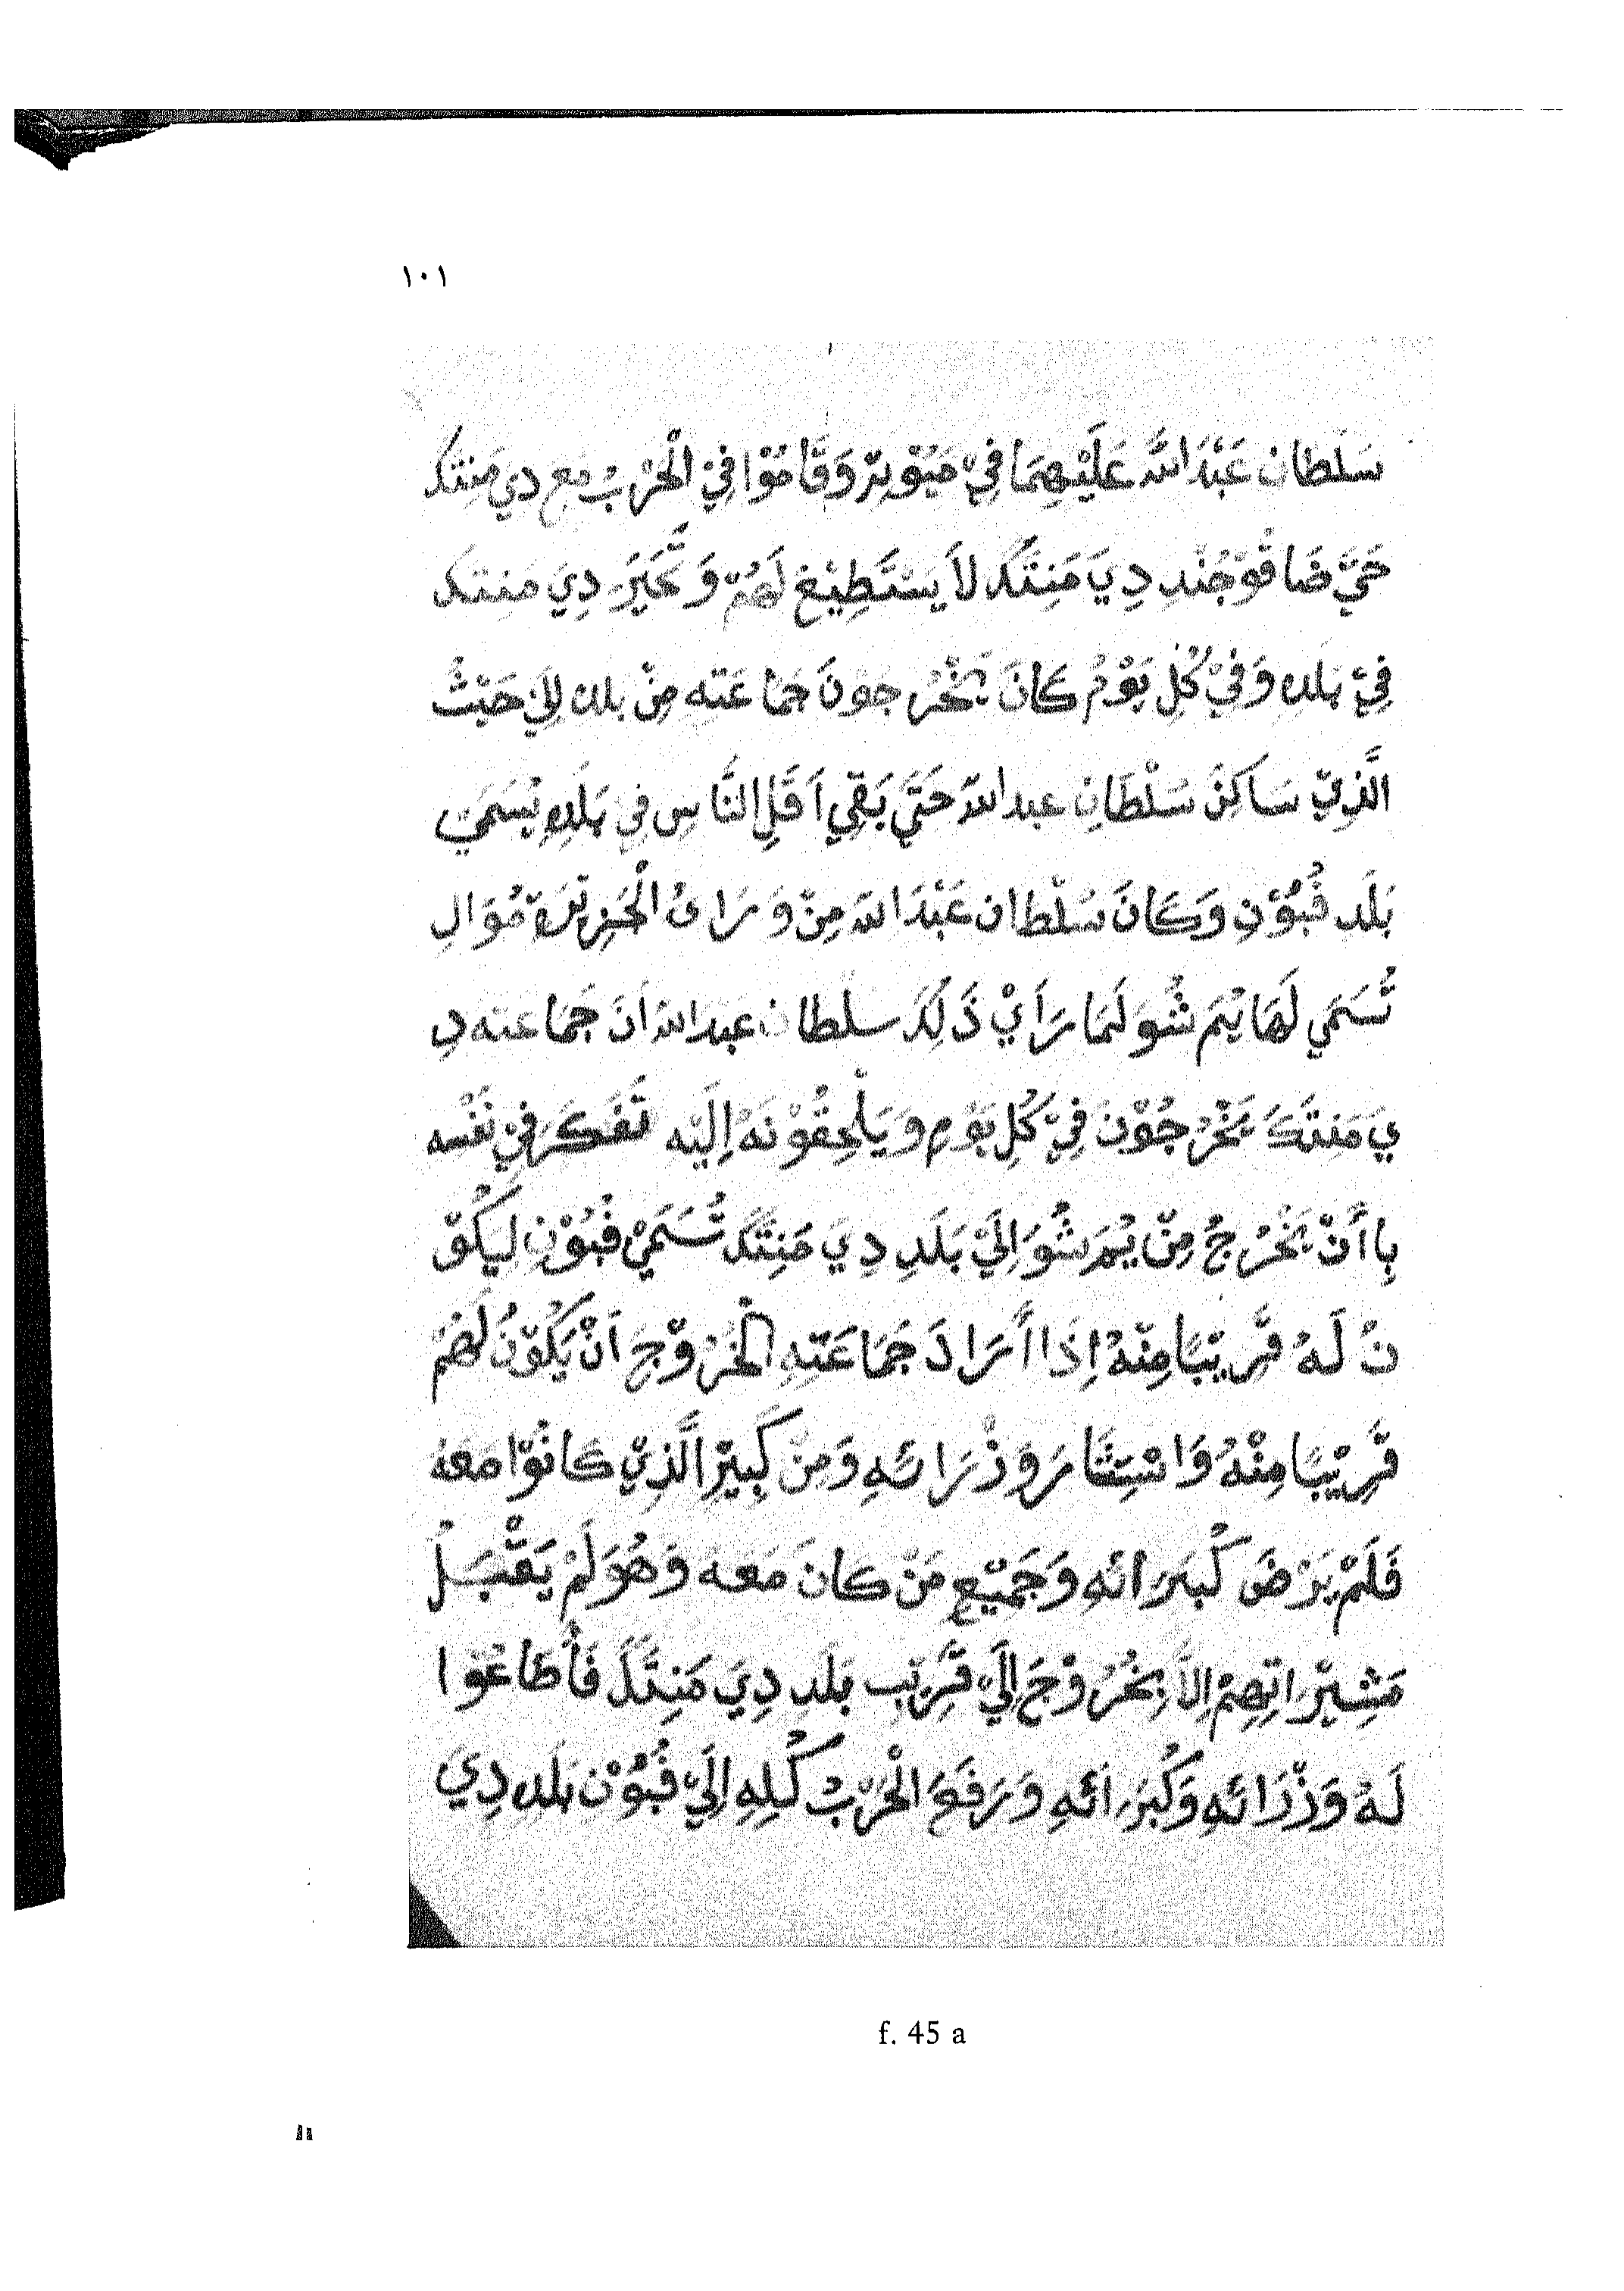 ١٠١
سَلَطان عَبْدَ اللَّه عَلَيْهِمَا فِيْ مَيُوْيِرْ وَقَامُوْا فِيْ الْحَرْبُ مع دي مَنِتَكَ
حَيَّ ضَاقُوْ جُنْدِ دِيَ مَنِتَكَ لاَ يَسْتَطِيْعَ لَهُمْ وَتَّحَيَرَ دِيَ مَنِتَكَ
فِيْ بَلَدِه وَفِيْ كُلِ يَوْمُ كَانَ يَخْرُجُوْنَ جَمَاعَتِه مِنْ بلده لِلَىْ حَيْثُ
الَّذِيْ سَاكِنْ سُلْطَانِ عبد اللهّ حَتَيَ بَقِي اَقَلِ النَّاسِ في بَلَدِهِ يُسَمَيْ
بَلَد قُبُوْنِ وَكَانَ سُلْطان عَبْدَ اللهَ مِنْ وَرَائُ الْجَزِيْرَة مُوَالِ
تُسَمَي لَهَا يُمَ شُوَ لَمَا رَأَيْ ذَلِكَ سلطان عبد اللهَ اَنَ جَمَاعته دِ
يَ مَنِتَكَ يَخْرُجُوْنَ فِيْ كُلِ يَوْمِ وَيَلْحِقُوْنَهْ اِلَيْه تَفَكَرَ فِيْ نَفْسه
بِاأَنْ يَخْرُجُ مِنْ يُمَ شُوَ اِلَيْ بَلَدِ دِيَ مَنِتَكَ تُسَمَيْ قُبُوْنِ لِيَكُوْ
نُ لَهُ قَرِيْبًا مِنْهُ اِذَا أَرَادَ جَمَاعَتِهِ الْخُرُوْجَ اَنْ يَكُوْنُ لَهُمْ
قَرِيْبًا مِنْهُ وَاسْتِشَارَ وَزْرَائَهِ وَمِنْ كَبِيْرِ الَّذِيْ كَانُوْا مَعَهُ
فَلَمْ يَرْضَ كُبَرَائَهِ وَجَمِيْعِ مَنْ كان مَعَه وَهُوَ لَمْ يَقْبَلُ
مَشِيْرَاتِهِمْ اِلاَّ بِخُرُوْجَ اِلَيْ قَرِيْبِ بَلَدِ دِيَ مَنِتَكَ فَأَطَاعُوا
لَهُ وَزْرَائَهِ وَكُبَرَائَهِ وَرَفَعَ الْحَرْبُ كُلِهِ اِلَيْ قُبُوْن بَلَدِ دِيَ
f. 45 a